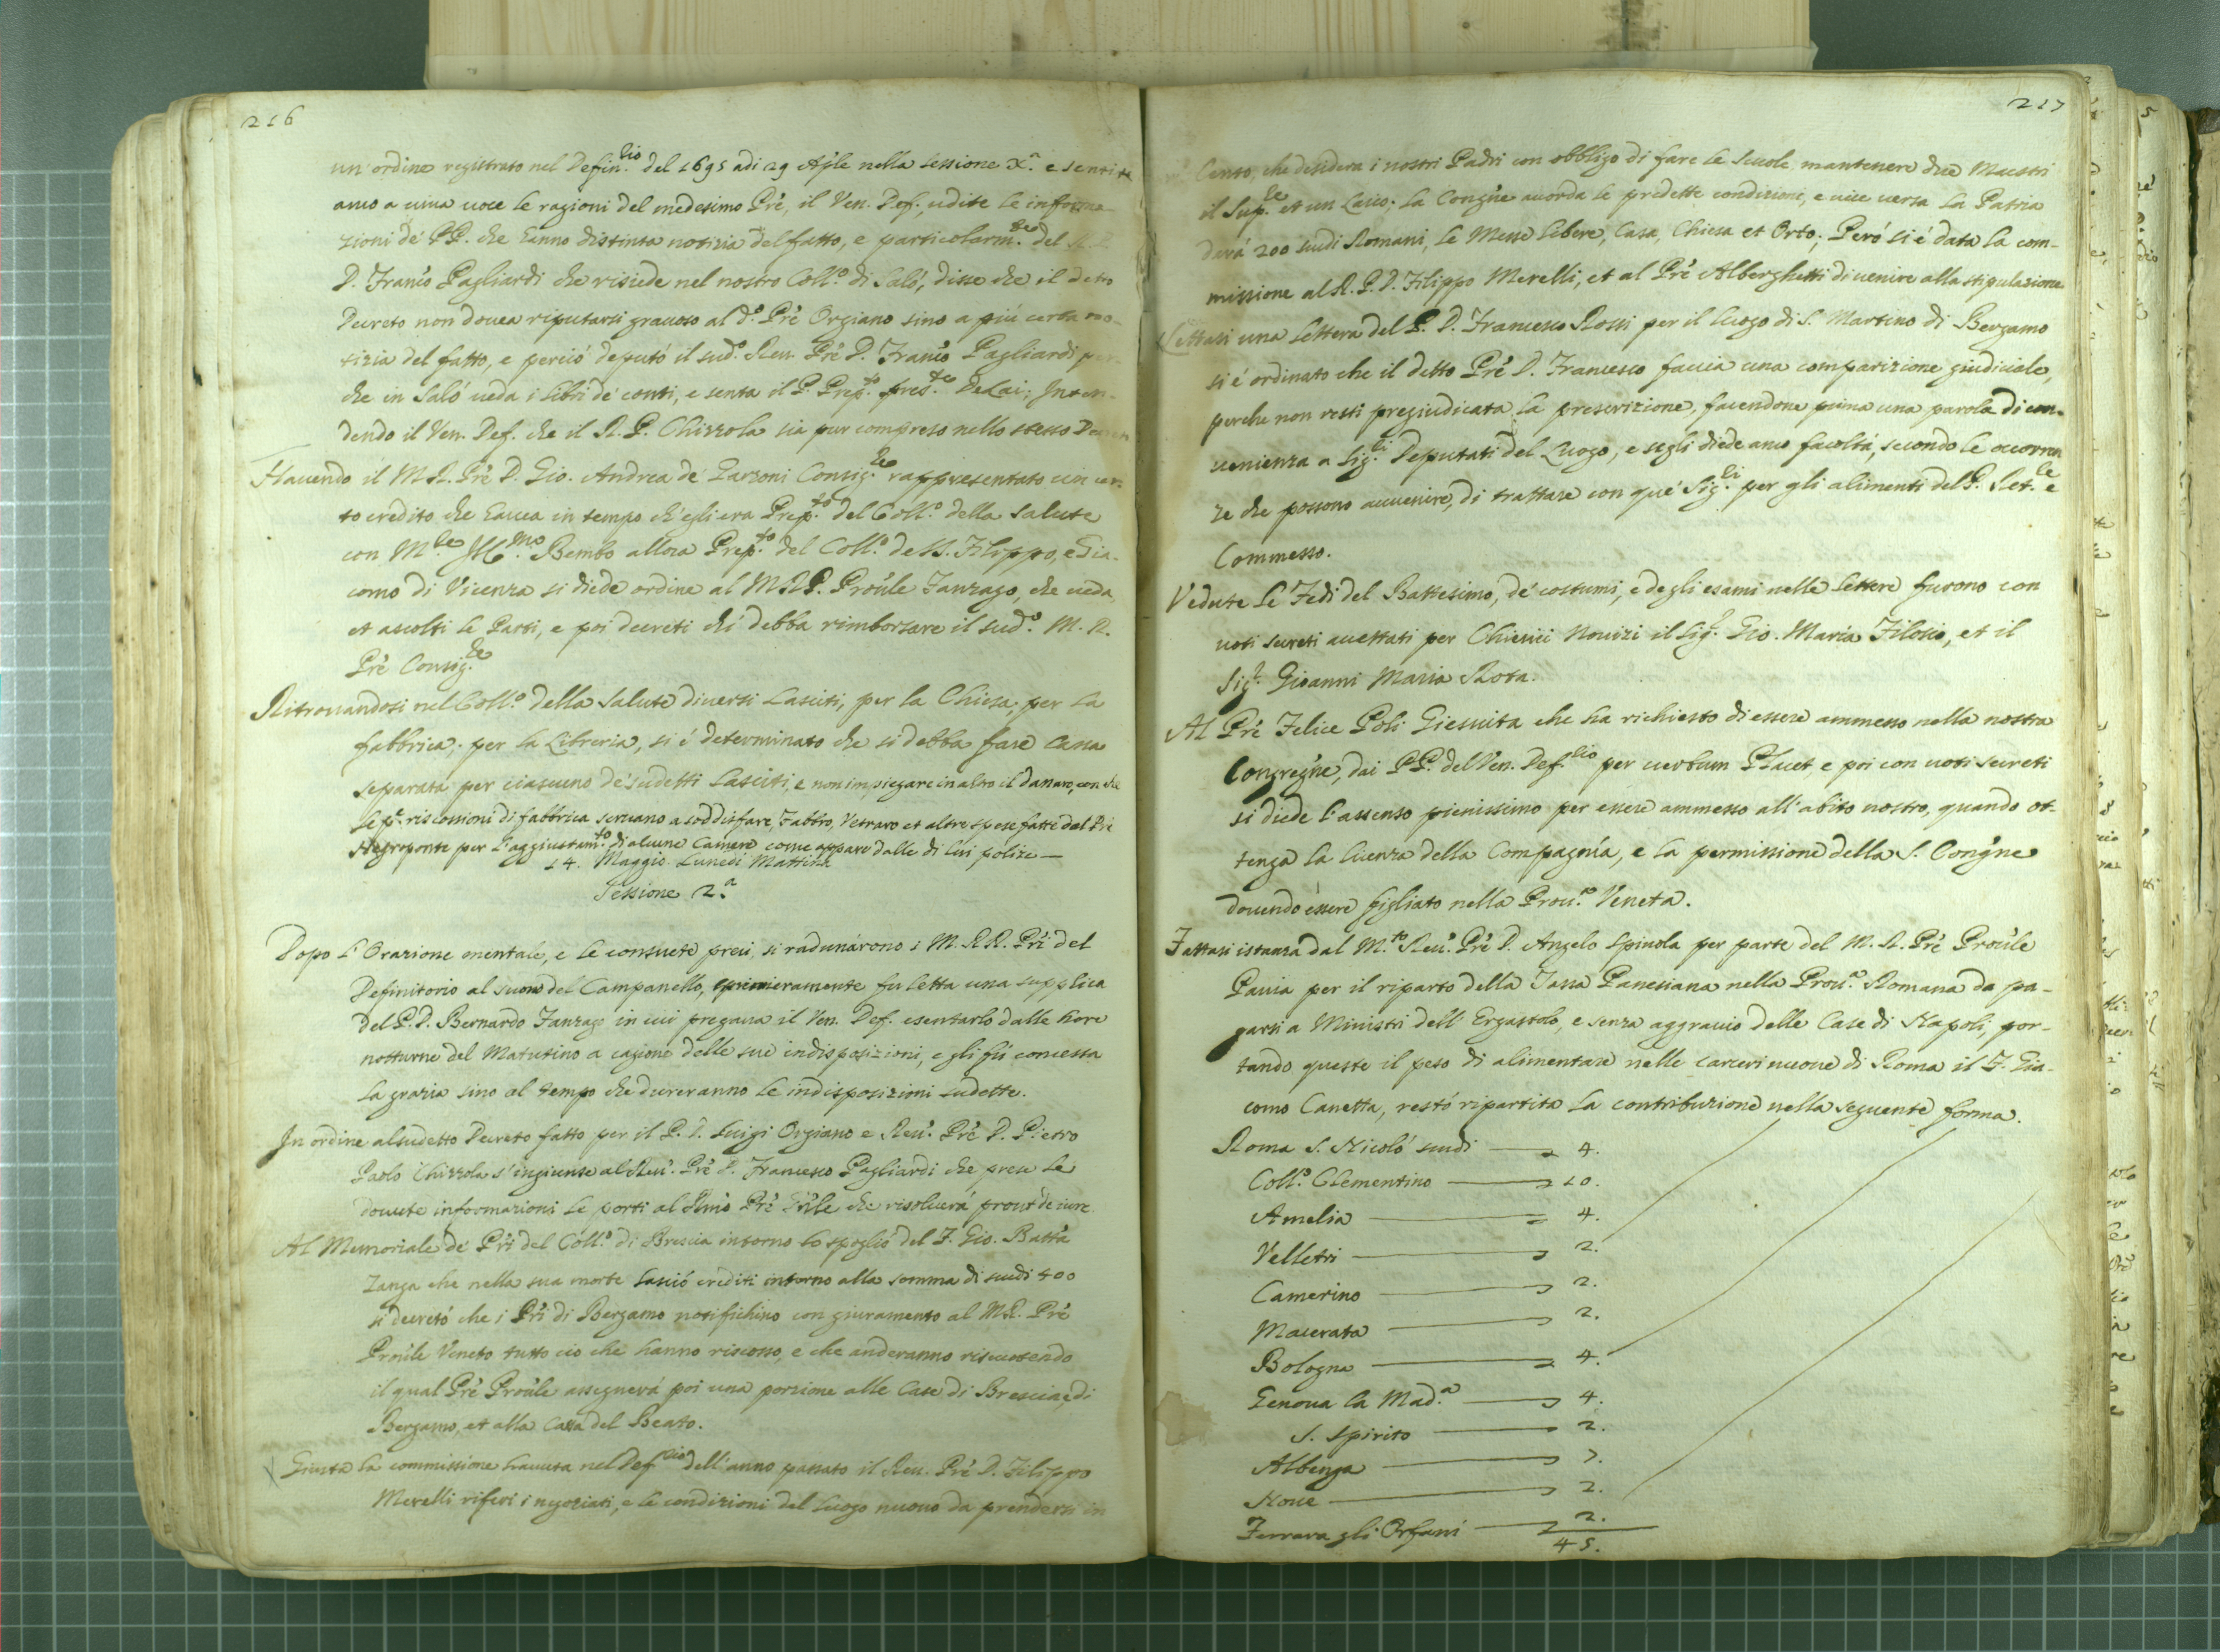 216
un' ordine registrato nel Defin.rio del 1695 adi 29 Aple nella sessione X.a e sentite
anco a viva voce le ragioni del medesimo Prê, il Ven. Def., udite le informa
zioni de' PP. che hanno distinta notizia del fatto, e particolarm.te del R.P.
D. Franco Pagliardi che risiede nel nostro Coll.o di Salò, disse che il detto
Decreto non dovea riputarsi gravoso al d.o Prê Orgiano sino a più certa no-
tizia del fatto, e perciò deputò il sud.o Rev. Prê D. Franco Pagliardi per
che in Salò veda i libri de conti, e senta il P. Prep.to pres.te Delai; Inten-
dendo il Ven. Def. che il R. P. Chizzola sia pur compreso nello stesso Decreto
Havendo il M.R. Prê D. Gio. Andrea de' Garzoni Consig.re rappresentato un cer-
to credito che havea in tempo ch'egli era Prep.to del Coll.o della Salute
con M.re Ill.mo Bembo allora Prep.to del Coll.o de SS. Filippo, e Gia-
como di Vicenza si diede ordine al M.R.P. Proûle Fanzago, che veda,
et ascolti le Parti, e poi decreti chi debba rimborsare il sud.o M. R.
Prê Consig.re
Ritrovandosi nel Coll.o della Salute diversi Lasciti, per la Chiesa, per la
fabbrica, per la Libreria, si è determinato che si debba fare Cassa
separata per ciascuno de' sudetti Lasciti, e non impiegare in altro il danaro, con che
le p.e riscossioni di fabbrica servano a soddisfare, Fabbro, Vetraro et altre spese fatte dal Prê
Negroponte per l'aggiustam.to di alcune Camere come appare dalle di lui polize —
14. Maggio Lunedi Mattina
Sessione 2.a
Dopo l'Orazione mentale, e le consuete preci, si radunárono i M. RR. Pri del
Definitorio al suono del Campanello, primieramente fu letta una supplica
del P. D. Bernardo Fanzago in cui pregava il Ven. Def. esentarlo dalle hore
notturne del Matutino a cagione delle sue indisposizioni, e gli fú concessa
la grazia sino al tempo che dureranno le indisposizioni sudette.
In ordine al sudetto Decreto fatto per il P. D. Luigi Orgiano e Rev.o Prê D. Pietro
Paolo Chizzola s'ingiunse al Rev.o Prê D. Francesco Pagliardi che prese le
dovute informazioni le porti al Rmo Prê Gnle che risolverà prout de iure
Al Memoriale de' Pri del Coll.o di Brescia intorno lo spoglio del F. Gio. Batta
Zanga che nella sua morte lasciò crediti intorno alla somma di scudi 400
si decretó che i Pri di Bergamo notifichino con giuramento al M.R. Prê
Proûle Veneto tutto ciò che hanno riscosso, e che anderanno riscuotendo
il qual Prê Proûle assegnerà poi una porzione alle Case di Brescia, e di
Bergamo, et alla Casa del Beato.
Giusta la commissione havuta nel Def.rio dell'anno passato il Rev. Prê D. Filippo
Merelli riferì i negoziati, e le condizioni del luogo nuovo da prendersi in
217
Cento, che desidera i nostri Padri con obbligo di fare le scuole, mantenere due Maestri
il Sup.re et un Laico; la Congne accorda le predette condizioni, e vice versa la Patria
darà 200 scudi Romani, le Messe libere, Casa, Chiesa et Orto; Però si è data la com-
missione al R. P. D. Filippo Merelli, et al Prê Alberghetti di venire alla stipulazione
Lettasi una lettera del P. D. Francesco Rossi per il luogo di S. Martino di Bergamo
si è ordinato che il detto Prê D. Francesco faccia una comparizione giudiciale,
perche non resti pregiudicata la prescrizione, facendone prima una parola di con-
venienza a Sig.ri Deputati del Luogo, e segli diede anco facoltà, secondo le occorren
ze che possono avvenire, di trattare con que' Sig.ri per gli alimenti del P. Ret.re e
Commesso.
Vedute le Fedi del Battesimo, de' costumi, e degli esami nelle lettere furono con
voti secreti accettati per Chierici Novizi il Sig.r Gio. Maria Filosio, et il
Sig.r Gioanni Maria Rota.
Al Prê Felice Poli Giesuita che ha richiesto di essere ammesso nella nostra
Congregne, dai PP. del Ven. Def.rio per verbum Placet, e poi con voti secreti
si diede l'assenso pienissimo per essere ammesso all'abito nostro, quando ot-
tenga la licenza della Compagnía, e la permissione della S. Congne
dovendo essere figliato nella Prov.a Veneta.
Fattasi istanza dal M.to Rev.o Prê D. Angelo Spinola per parte del M. R. Prê Proûle
Pavia per il riparto della Tassa Panesiana nella Prov.a Romana da pa-
garsi a Ministri dell'Ergastolo, e senza aggravio delle Case di Napoli, por-
tando queste il peso di alimentare nelle carceri nuove di Roma il F. Gia-
como Canetta, restò ripartita la contribuzione nella seguente forma.
Roma S. Nicoló scudi — 4.
Coll.o Clementino — 10.
Amelia — 4.
Velletri — 2.
Camerino — 2.
Macerata — 2.
Bologna — 4.
Genova la Mad.a — 4.
S. Spirito — 2.
Albenga — 7.
Nove — 2.
Ferrara gli Orfani — 2.
45.